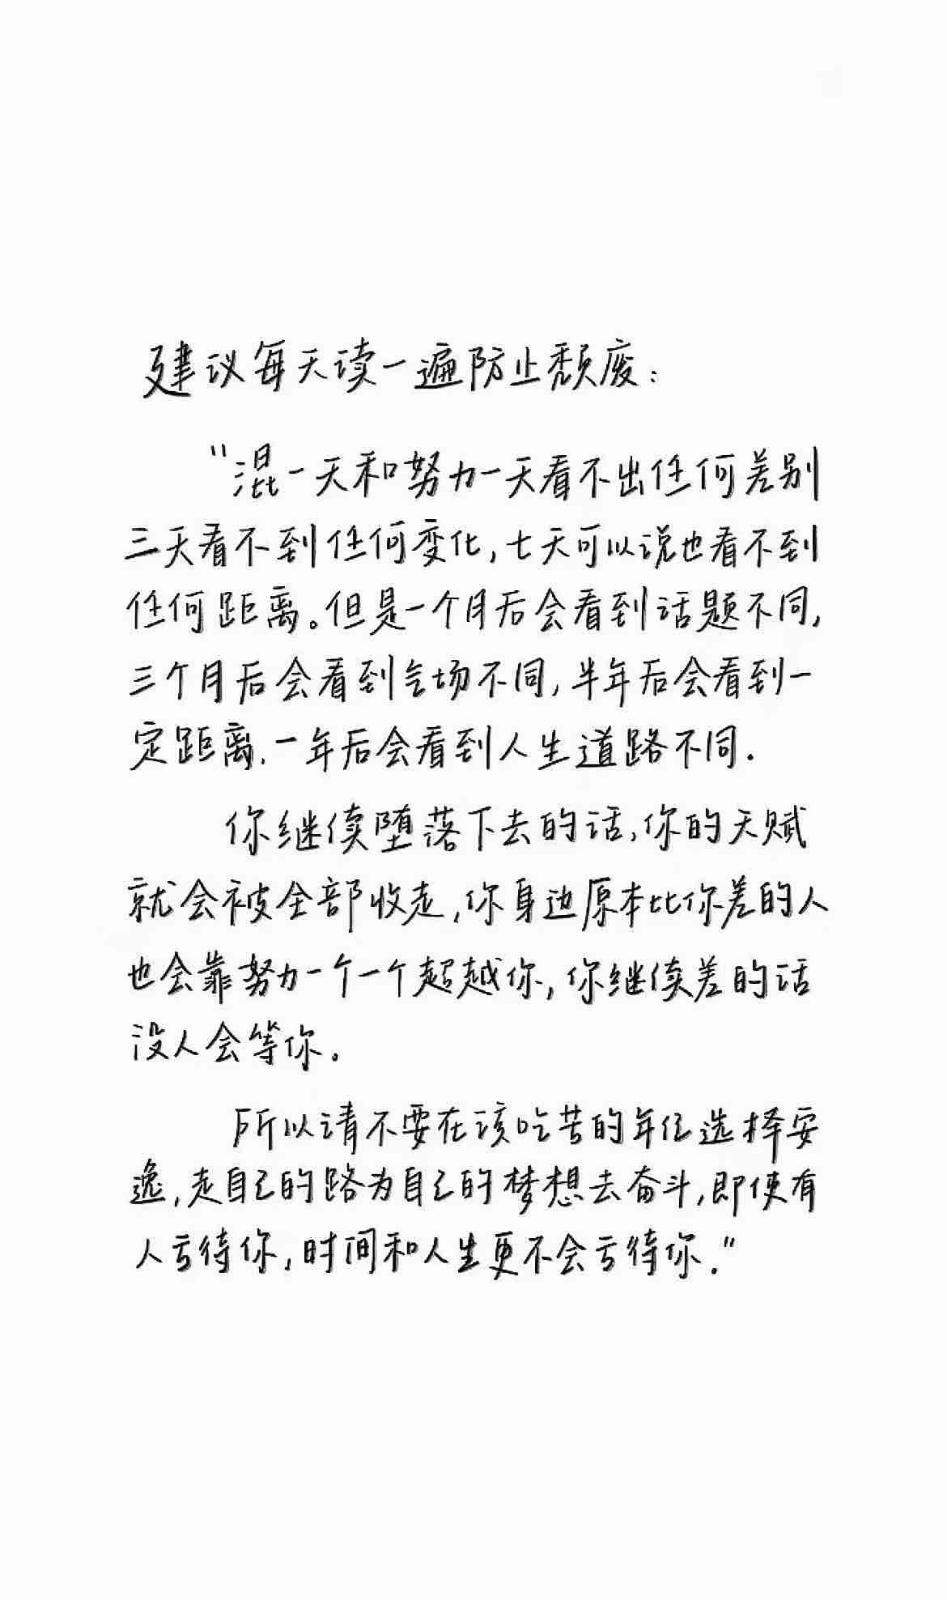 建议每天读一遍防止颓废：
“混一天和努力一天看不出任何差别
三天看不到任何变化，七天可以说也看不到
任何距离。但是一个月后会看到话题不同，
三个月后会看到气场不同，半年后会看到一
定距离，一年后会看到人生道路不同.
你继续堕落下去的话，你的天赋
就会被全部收走，你身边原本比你差的人
也会靠努力一个一个超越你，你继续差的话
没人会等你。
所以请不要在该吃苦的年纪选择安
逸，走自己的路为自己的梦想去奋斗，即使有
人亏待你，时间和人生更不会亏待你.”